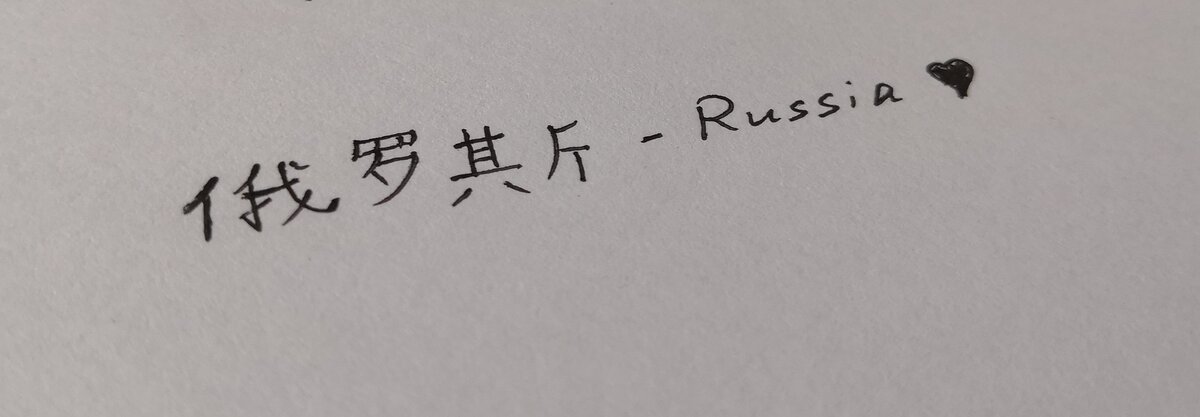 俄罗其斤 - Russia ♥